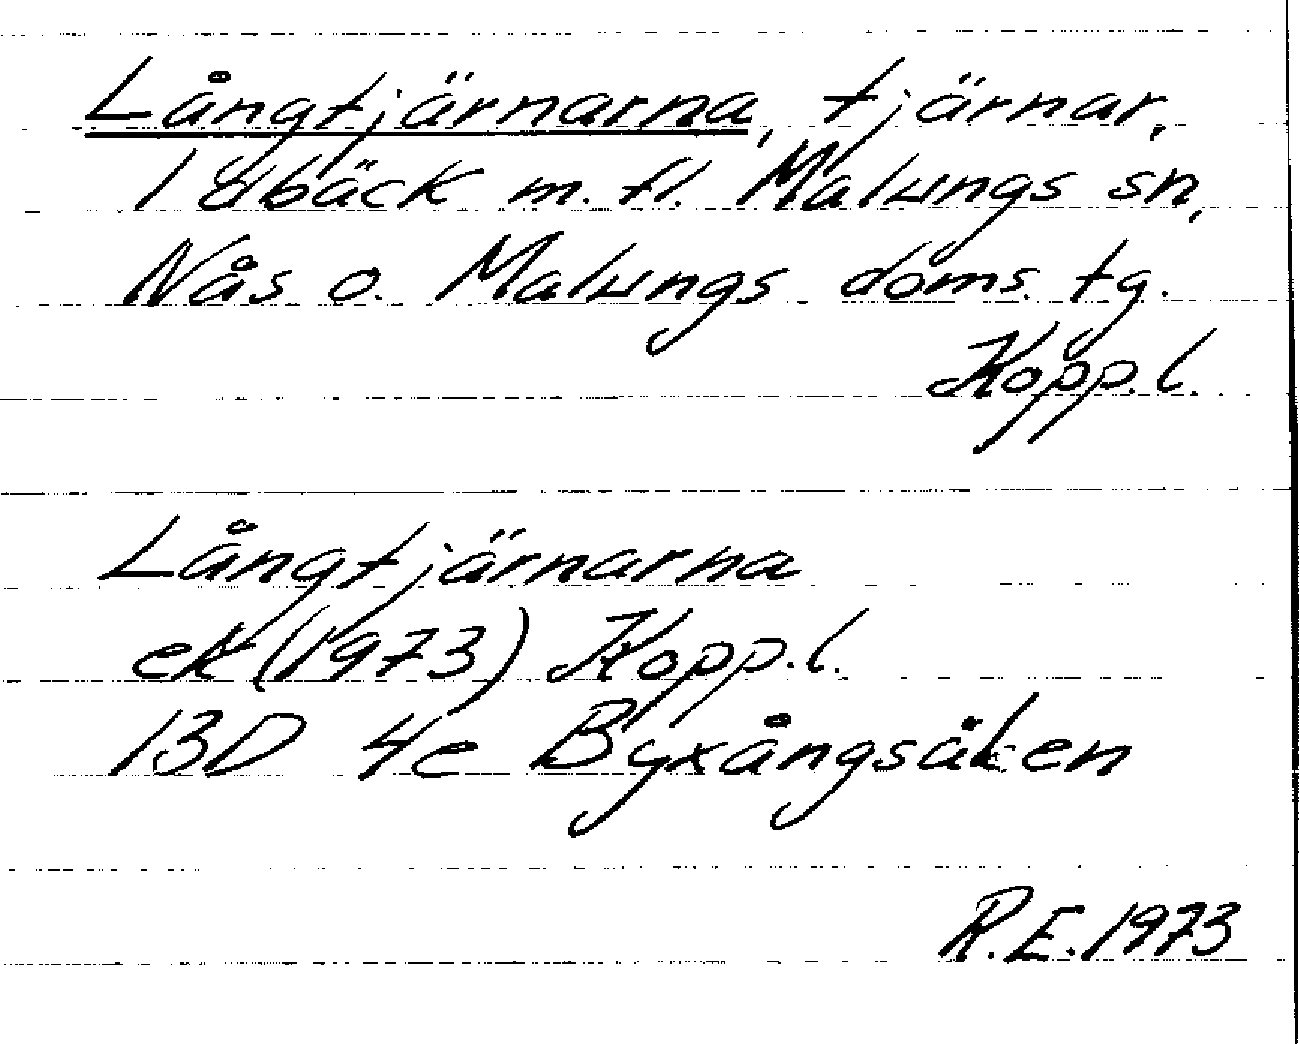 Långtjärnarna, tjärnar,
Idbäck m. fl. Malungs sn,
Nås o. Malungs doms. tg.
Kopp.l.
Långtjärnarna
ek (1973) Kopp.l.
13D 4e Byxångsälen
R.E. 1973